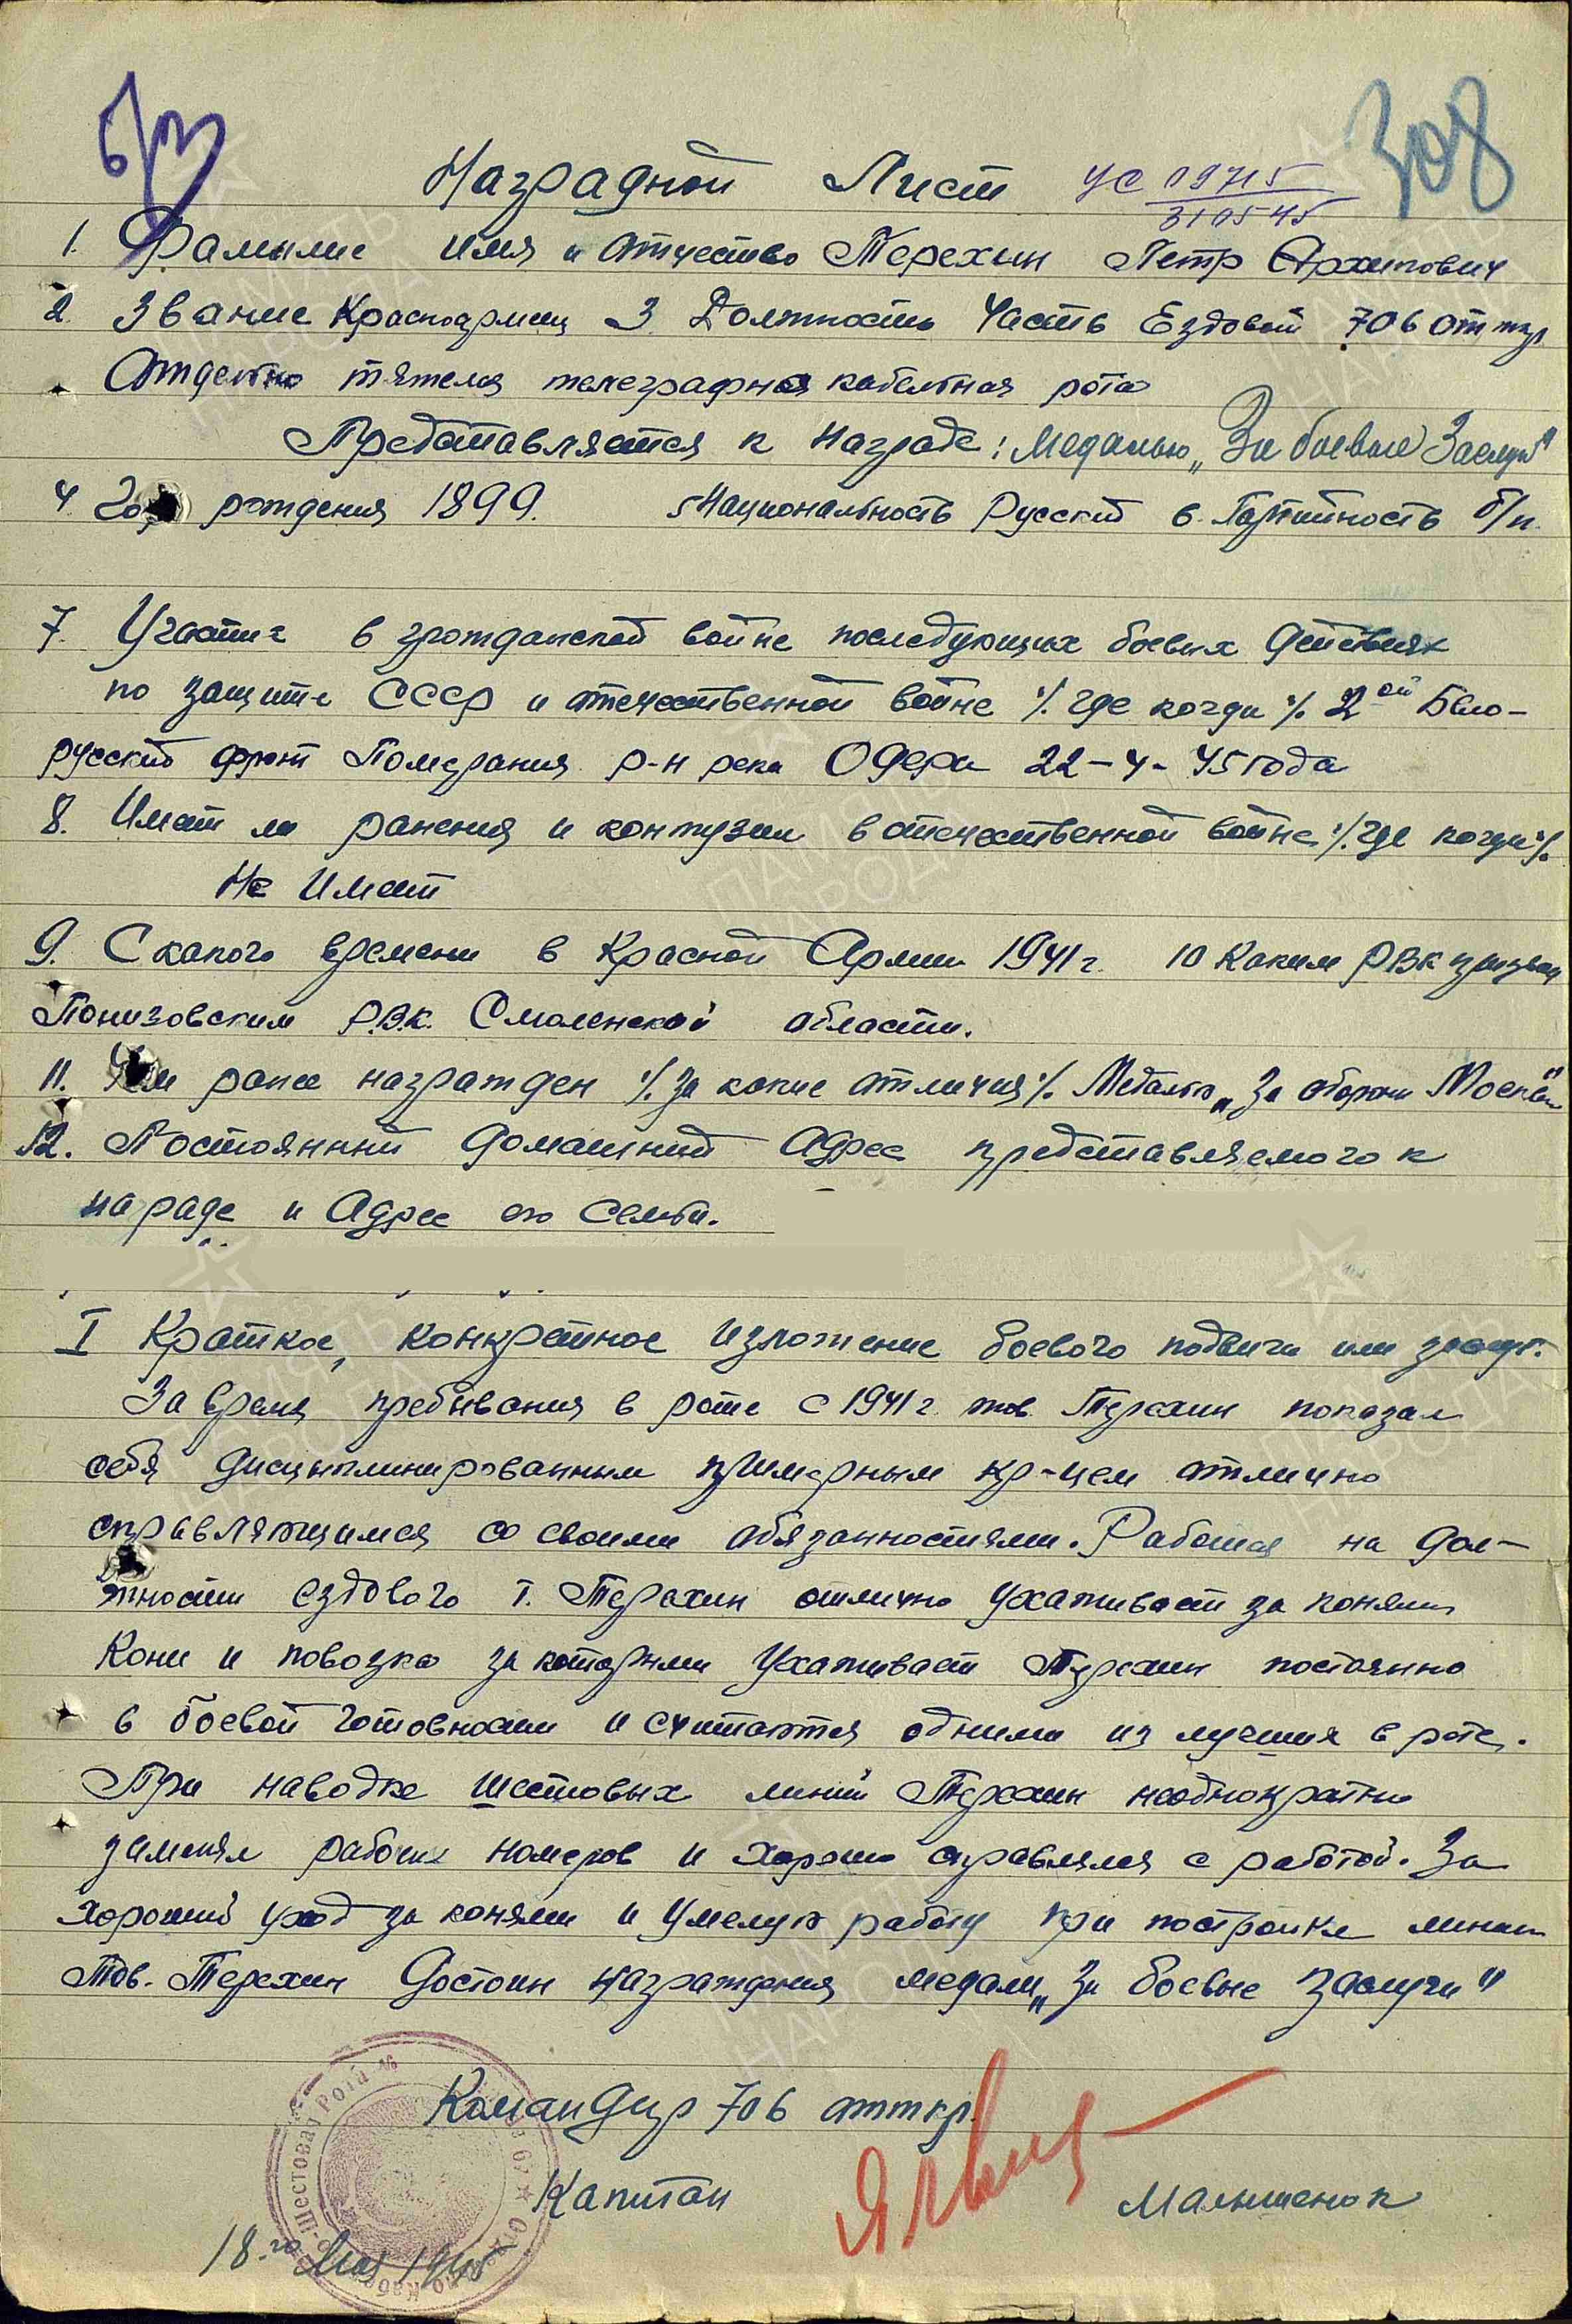 308
Наградной Лист УС 09715
310545
1. Фамилие имя и отчество Терехин Петр Архипович
2. Звание Красноармеец 3 Должность Часть Ездовой 706 оттк
Отдельно тяжелая телеграфная кабельная рота
Представляется к награде: Медалью „За боевые Заслуги"
4. Год рождения 1899. 5 Национальность Русский 6. Партийность б/п.
7. Участие в гражданской войне последующих боевых действиях
по защите СССР и отечественной войне /. где когда /. 2ой Бело-
русский фронт Померания р-н реки Одера 22-4-45 года
8. Имеет ли ранения и контузии в отечественной войне /. где когда /.
Не Имеет
9. С какого времени в Красной Армии 1941 г. 10 Каким РВК призван
Понизовским Р.В.К. Смоленской области.
11. Чем ранее награжден /. за какие отличия /. Медалью „За оборону Москвы"
12. Постоянный домашний Адрес представляемого к
награде и Адрес его семьи.
I Краткое, конкретное изложение боевого подвига или заслуг.
За время пребывания в роте с 1941 г. тов. Терехин показал
себя дисциплинированным примерным кр-цем отлично
справляющимся со своими обязанностями. Работая на дол-
жности ездового т. Терехин отлично ухаживает за конями
Кони и повозка за которыми ухаживает Терехин постоянно
в боевой готовности и считаются одними из лучших в роте.
При наводке шестовых линий Терехин неоднократно
заменял рабочих номеров и хорошо справлялся с работой. За
хороший уход за конями и умелую работу при постройке линии
Тов. Терехин Достоин награждения медали „За боевые заслуги"
Командир 706 отткр.
Капитан Малышенок
18.го Мая 1945